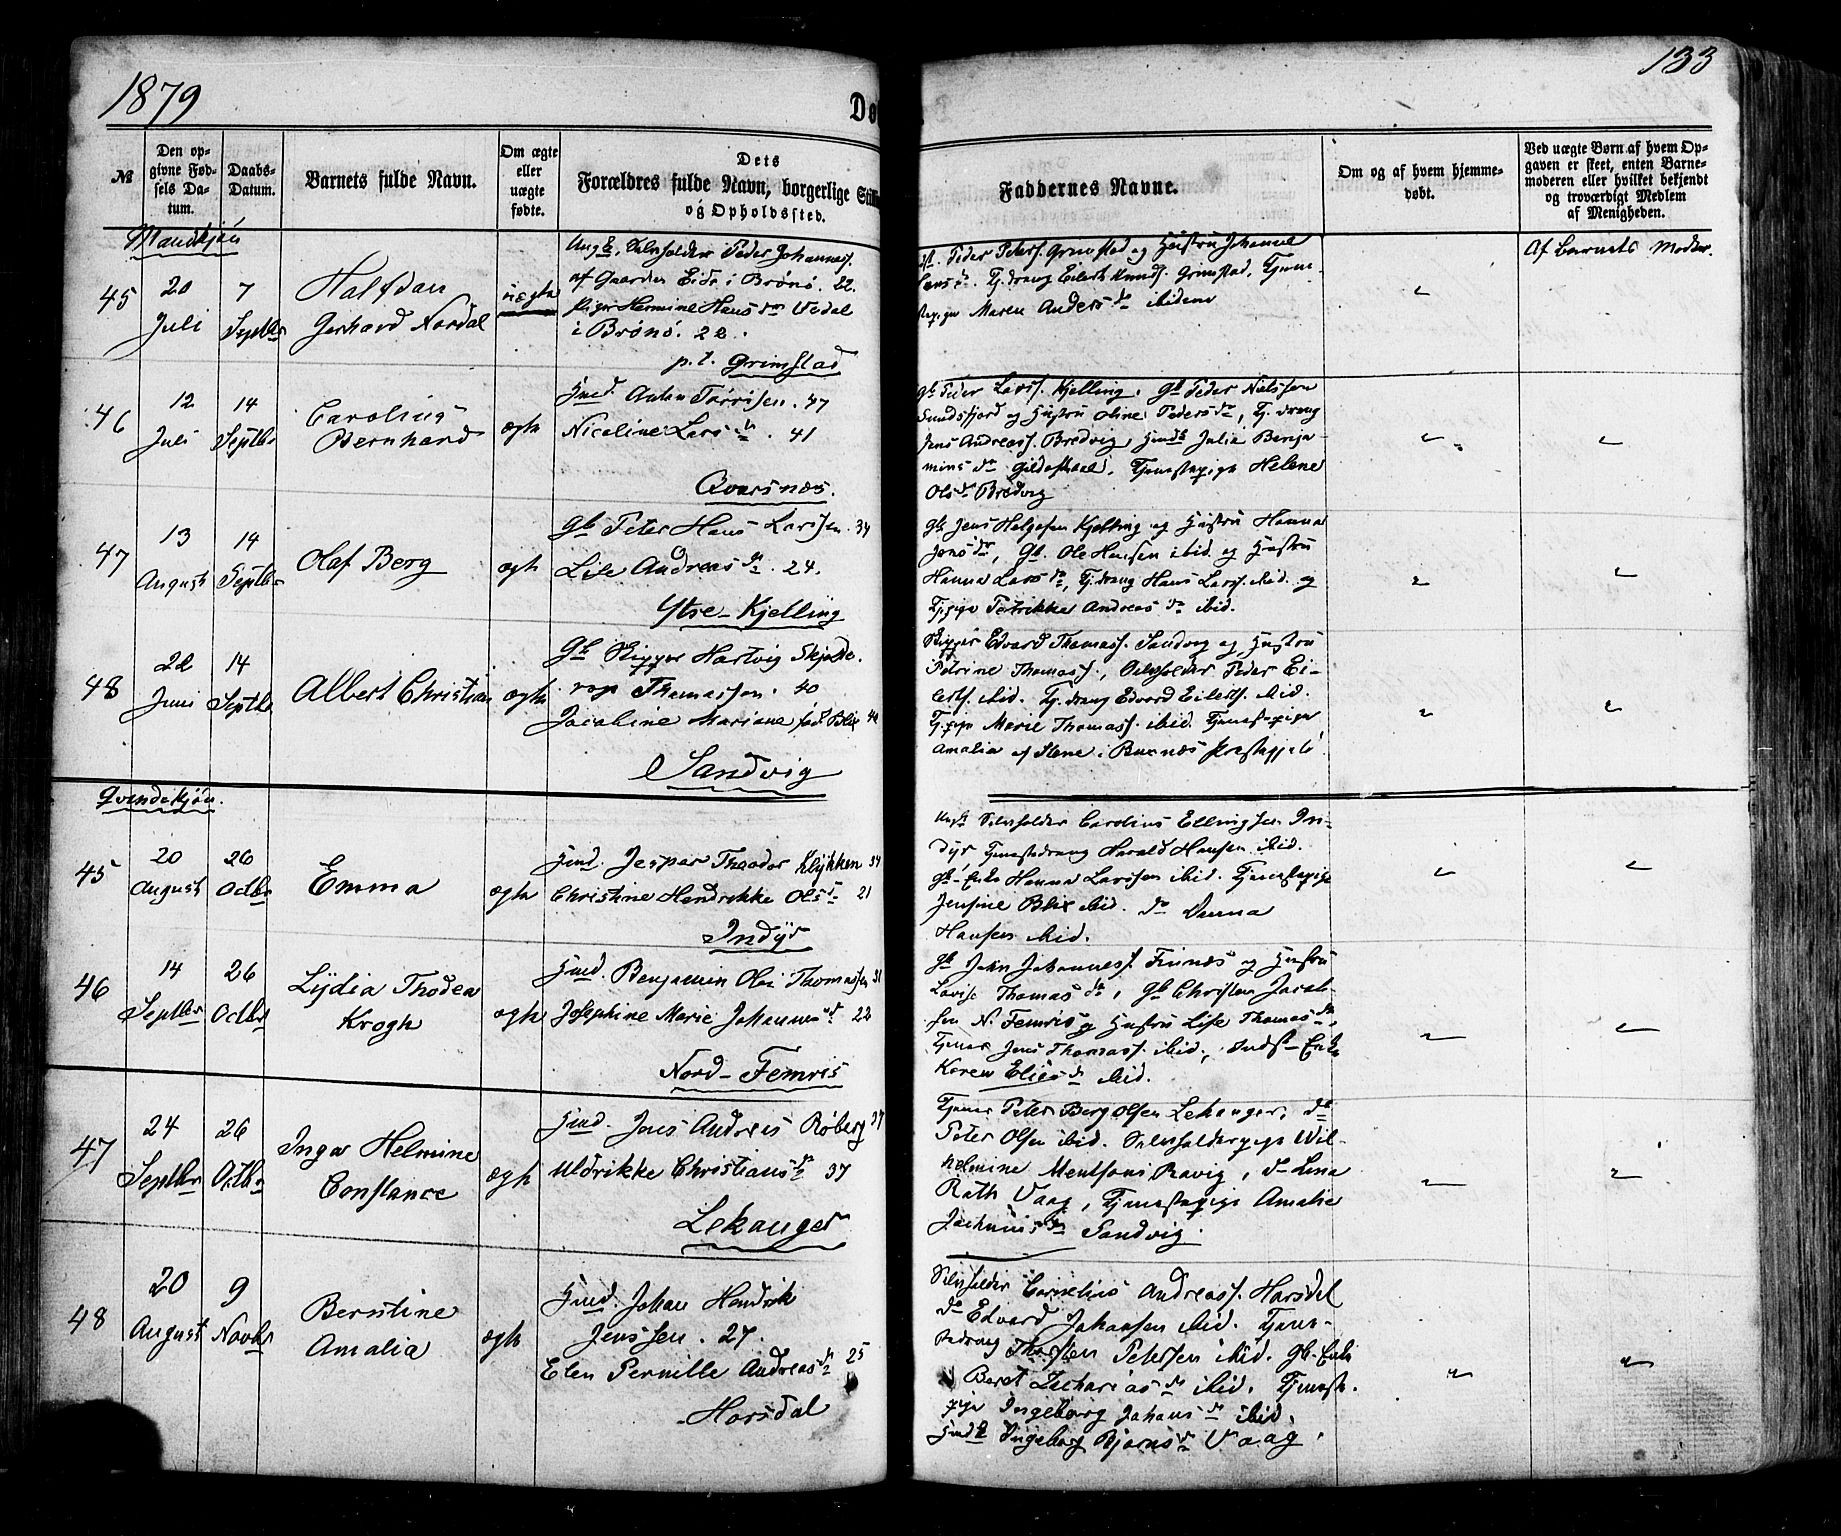 1879
133
Dø
№
Den op-
givne Fød-
sels Da-
tum.
Daabs-
Datum.
Barnets fulde Navn.
Om ægte
eller
uægte
fødte.
Dets
Forældres fulde Navn, borgerlige Still
og Opholdssted.
Faddernes Navne.
Om og af hvem hjemme-
døbt.
Ved uægte Børn af hvem Op-
gaven er skeet, enten Barne-
moderen eller hvilket bekjendt
og troværdigt Medlem
af Menigheden.
Mandkjøn
45
20
Juli
7
Septbr
Halfdan
Gerhard Nordal
uægte
Ungk. Selvfolder Peder Johannes.
af Gaarden Eide i Brønø. 22.
Pige Hermine Hansd. Vedal
i Brønø. 22.
p. t. Grimstad
Peder Peders. Grimstad og Hustru Johanne
Tj.drang Eilert Knuds. Grimstad, Tjene-
stepige Maren Andersd. ibidem
Af Barnets Moder.
46
12
Juli
14
Septbr
Carolius
Bernhard
ægte
Hmd. Anton Tørrisen. 47
Nicoline Larsd. 41
Qvarsnæs.
Gb Peder Lars. Kjelling, Gb Peder Nielssen
Sundsfjord og Hustru Oline Pedersd., Tj.drang
Jens Andreass. Bredvig, Julia Benja-
minsd. Gildeskaal, Tjenestepige Helene
Olsd. Bredvig
47
13
August
14
Septbr
Olaf Berg
ægte
Gb Peter Hans Larssen. 34
Lise Andreasd. 24.
Ytre-Kjelling
Gb Jens Helgesen Kjelling og Hustru Hanna
Jensd., Gb. Ole Hansen ibid. og Hustru
Hanna Larsd., Tj.drang Hans Larss. ibid. og
Tj.pige Petrikke Andreasd. ibid.
48
22
Juni
14
Septbr
Albert Christian
ægte
Gb Skipper Hartvig Skjelde-
rup Thomassen. 40
Jacobine Mariane fød Blix 40
Sandvig
Skipper Edvard Thomass. Sandvig og Hustru
Petrine Thomass., Selvfolder Peder Ei-
lerts. ibid. Tj.drang Edvard Eilerts. ibid.
Tj.pige Marie Thomass. ibid. Tjenestepige
Amalia af Stene i Buxnæs Præstegjeld.
Qvindekjøn.
45
20
August
26
Octbr
Emma
ægte
Hmd. Jesper Theodor Klykken 34
Christine Hendrikke Olsd. 21
Indyr
Selvfolder Carolius Ellingsen In-
dyr, Tjenestedrang Harald Hansen ibid.
Gb-Enke Hanna Larssen ibid. Tjenestepige
Jensine Blix ibid. do
Hansen ibid.
46
14
Septbr
26
Octbr
Lydia Thodea
Krogh
ægte
Hmd. Benjamin Oli Thomassen 31
Josephine Marie Johannesd. 22
Nord-Femris
Gb John Johannes. Finnes og Hustru
Lovise Thomasd., Gb Christen Jacob-
sen N. Femris og Hustru Lise Thomasd.,
Tjener Jens Thomass. ibid., Indst-Enke
Karen Eliesd. ibid.
47
24
Septbr
26
Octbr
Inga Helmine
Constance
ægte
Hmd. Jens Andreas Røberg 37
Uldrikke Christiansd. 37
Lekanger
Tjener Peter Berg Olsen Lekanger, do
Peter Olsen ibid. Selvfolderpige Wil-
helmine Mentsons Ravig, do Lina
Rath Vaag, Tjenestepige Amalie
Sandvig.
48
20
August
9
Novbr
Berntine
Amalia
ægte
Hmd. Johan Hendrik
Jenssen. 27.
Elen Pernille Andreasd. 25
Horsdal
Selvfolder Cornelius Andreass. Horsdal
do Edvard Johansen ibid. Tjene-
stedrang Thorsten Petersen ibid. Gb-Enke
Beret Zachariasd. ibid. Tjeneste-
pige Ingeborg Johansd. ibid.
Ingeborg Bjørnsd. Vaag.